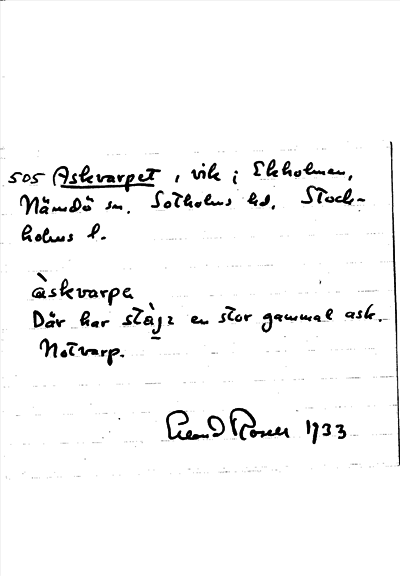 505 Askvarpet, vik i Ekholmen,
Nämdö sn. Sotholms hd, Stock-
holms l.
àskvarpe
Där har stàj2 en stor gammal ask.
Notvarp.
1933